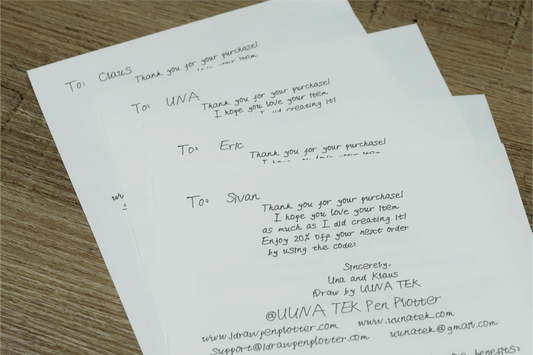 To: Claus
Thank you for your purchase!
To: UNA
Thank you for your purchase!
I hope you love your item
To: Eric
Thank you for your purchase!
To: Sivan
Thank you for your purchase!
I hope you love your item
as much as I did creating it!
Enjoy 20% off your next order
by using the code:
Sincerely,
Una and Klaus
iDraw by UUNA TEK
@UUNA TEK Pen Plotter
www.idrawpenplotter.com www.uunatek.com
support@idrawpenplotter.com uunatek@gmail.com
benefits: